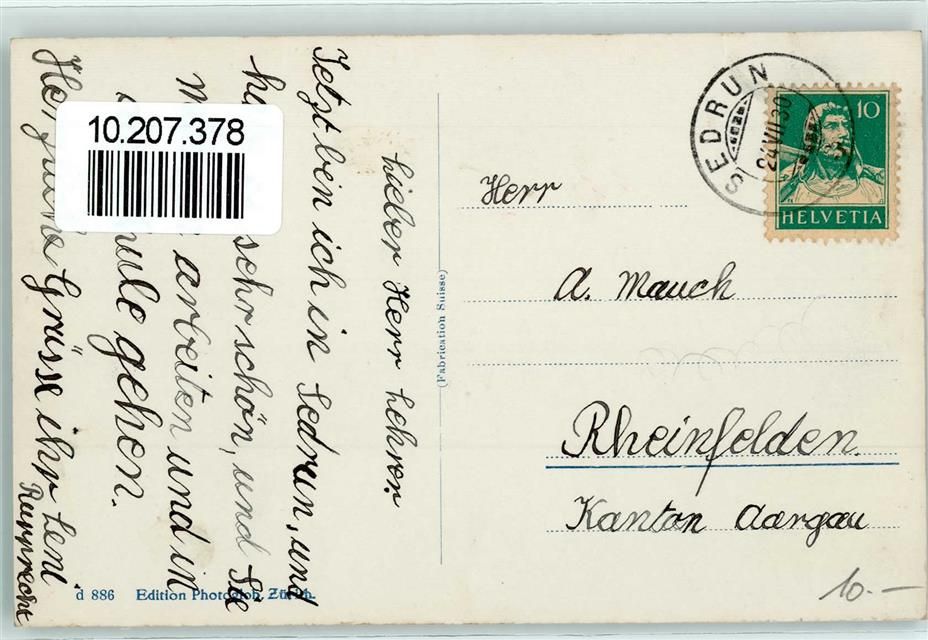 Lieber Herr Lehrer.
Jetzt bin ich in Sedrun, und
sehr schön, und Sie
arbeiten und in
gehen.
Grüsse ihr Leni
Rupprecht
10.207.378
(Fabrication Suisse)
d 886 Edition Photoglob, Zürich.
SEDRUN
24.VII.30
10
HELVETIA
Herr
A. Mauch
Rheinfelden.
Kanton Aargau
10.-